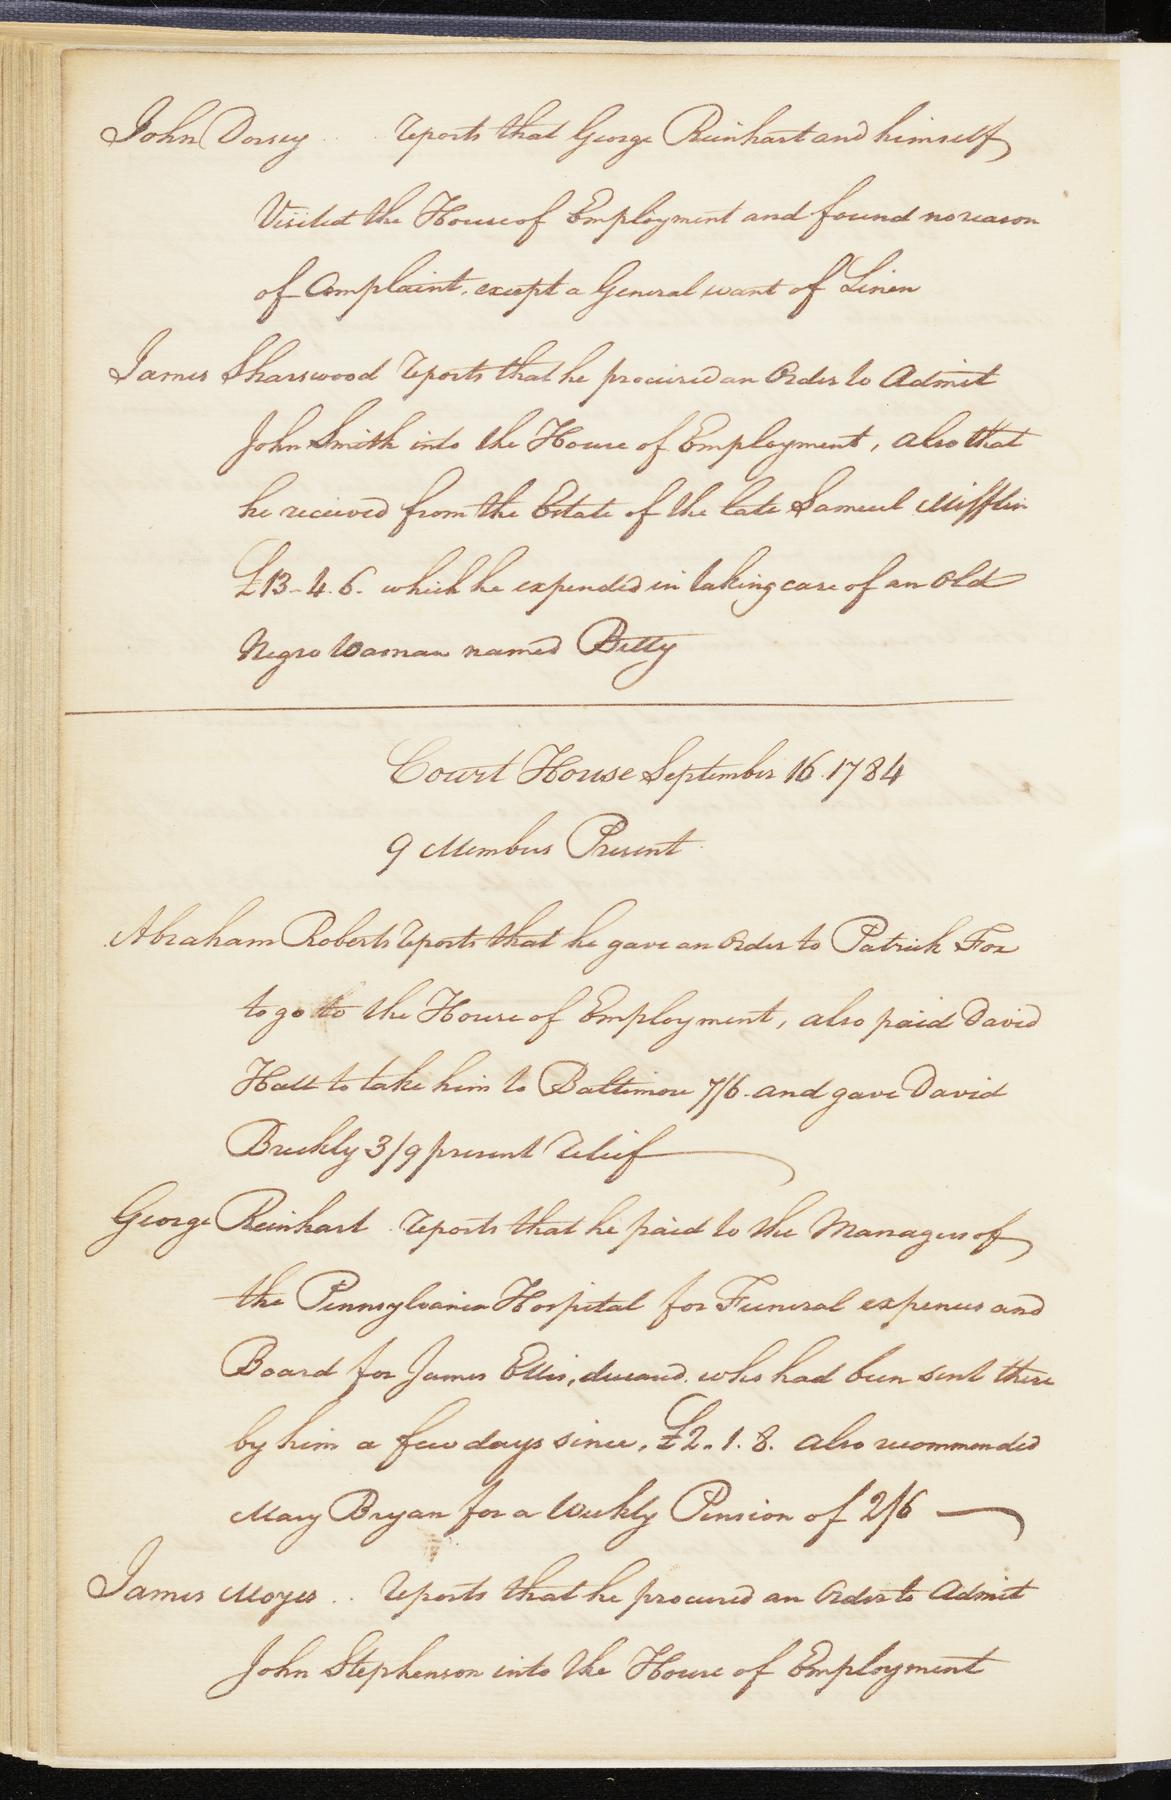 John Dorsey . . reports that George Reinhart and himself
Visited the House of Employment and found no reason
of Complaint. except a General want of Linen
James Sharswood reports that he procured an Order to Admit
John Smith into the House of Employment, also that
he received from the Estate of the late Samuel Mifflin
£13-4.6. which he expended in taking care of an Old
Negro Woman named Betty
Court House September 16. 1784
9 Members Present
Abraham Roberts reports that he gave an Order to Patrick Fox
to go to the House of Employment, also paid David
Hall to take him to Baltimore 7/6. and gave David
Breckly 3/9 present relief
George Reinhart reports that he paid to the Managers of
the Pennsylvania Hospital for Funeral expences and
Board for James Ellis, deceased. who had been sent there
by him a few days since, £2.1.8. also recommended
Mary Bryan for a Weekly Pension of 2/6
James Moyes . . reports that he procured an Order to Admit
John Stephenson into the House of Employment